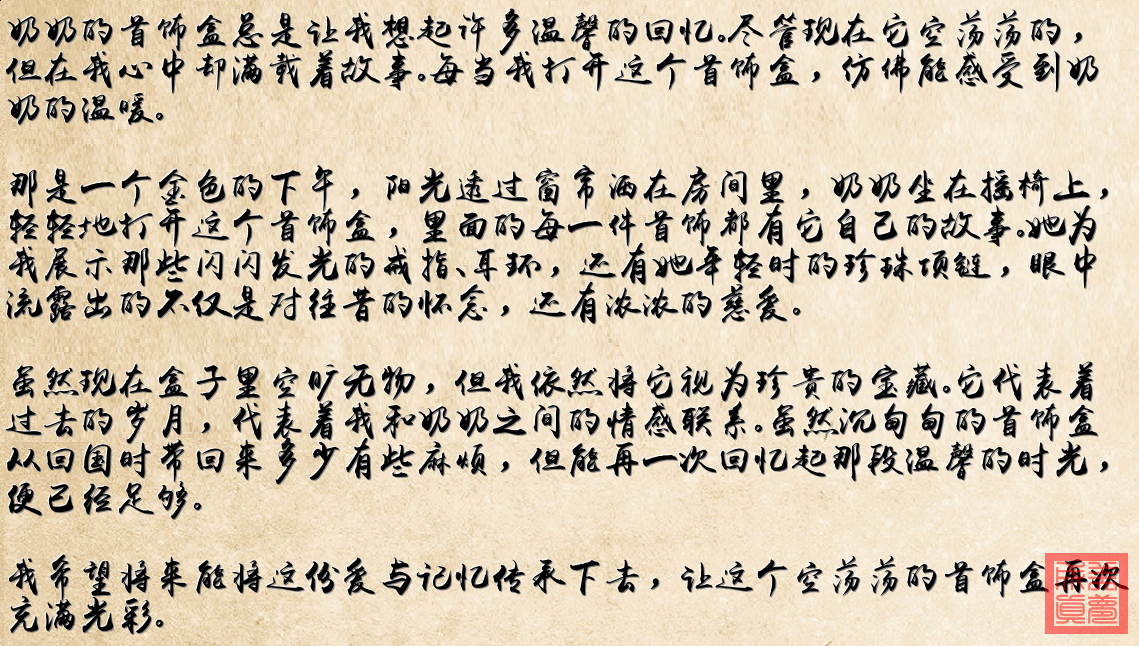 奶奶的首饰盒总是让我想起许多温馨的回忆。尽管现在它空荡荡的，
但在我心中却满载着故事。每当我打开这个首饰盒，仿佛能感受到奶
奶的温暖。
那是一个金色的下午，阳光透过窗帘洒在房间里，奶奶坐在摇椅上，
轻轻地打开这个首饰盒，里面的每一件首饰都有它自己的故事。她为
我展示那些闪闪发光的戒指、耳环，还有她年轻时的珍珠项链，眼中
流露出的不仅是对往昔的怀念，还有浓浓的慈爱。
虽然现在盒子里空旷无物，但我依然将它视为珍贵的宝藏。它代表着
过去的岁月，代表着我和奶奶之间的情感联系。虽然沉甸甸的首饰盒
从回国时带回来多少有些麻烦，但能再一次回忆起那段温馨的时光，
便已经足够。
我希望将来能将这份爱与记忆传承下去，让这个空荡荡的首饰盒再次
充满光彩。